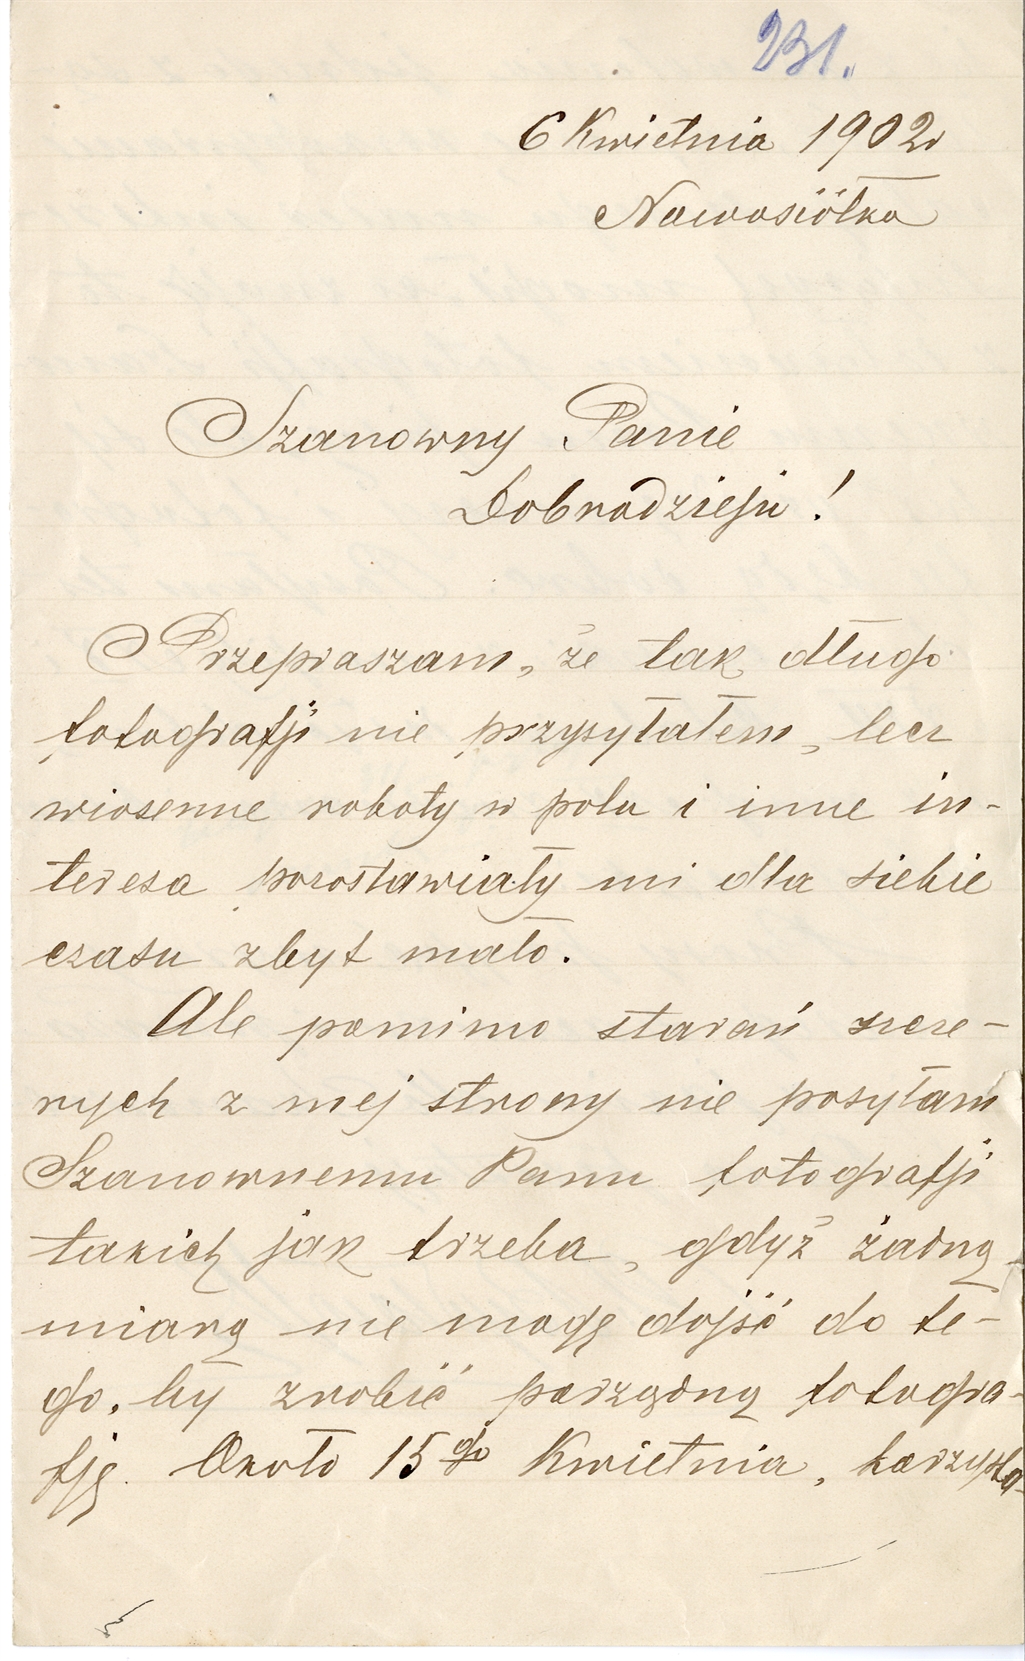 231.
6 Kwietnia 1902 r
Nowosiółka
Szanowny Panie
Dobrodzieju!
Przepraszam, że tak długo
fotografji nie przysyłałem, lecz
wiosenne roboty w polu i inne in-
teresa pozostawiały mi dla siebie
czasu zbyt mało.
Ale pomimo starań szcze-
rych z mej strony nie posyłam
Szanownemu Panu fotografji
takich jak trzeba, gdyż żadną
miarą nie mogę dojść do te-
go, by zrobić porządną fotogra-
fję. Około 15go Kwietnia, korzysta-